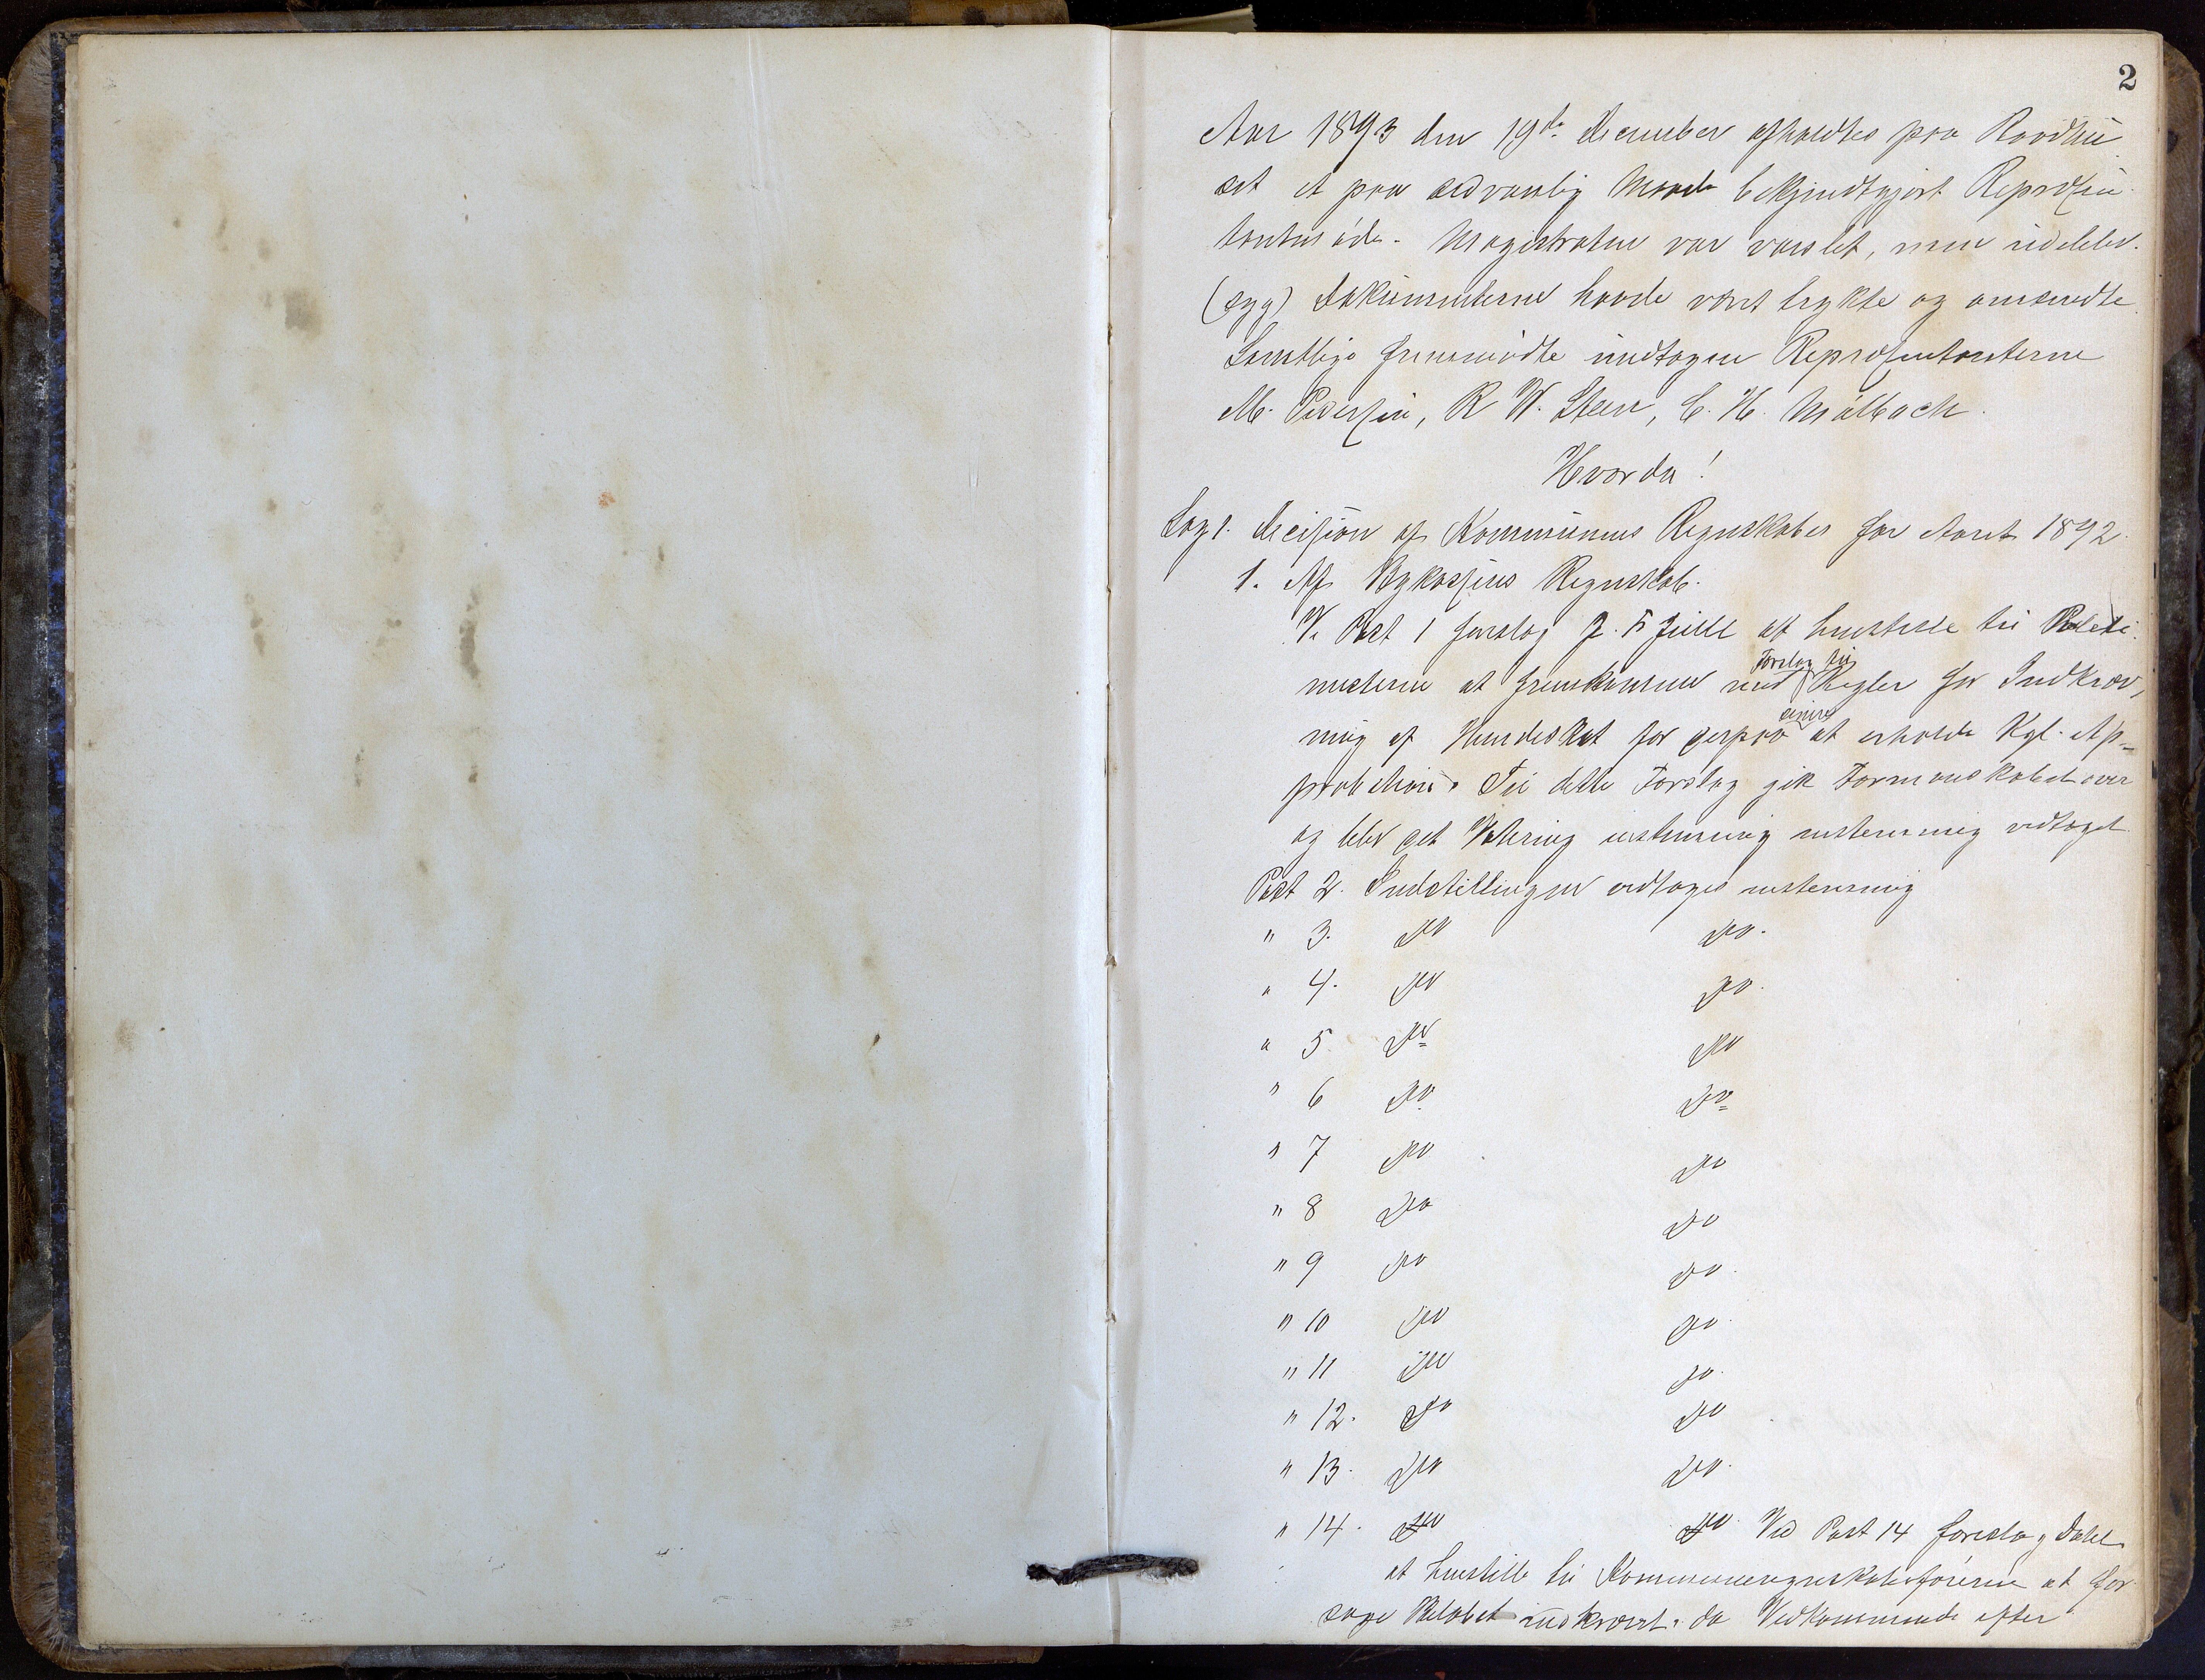 2
Aar 1893 den 19de December afholdtes paa Raadhu
set et paa sædvanlig Maade bekjendtgjort Repræsen
tantmøde. Magistraten var varslet, men udeblev.
(syg) Dokumenterne havde vært trykte og omsendte.
Samtlige fremmødte undtagen Repræsentanterne
M. Pedersen, R W. Steen, C. H. Mølbach.
Hvorda!
Sag 1. Decision af Kommunens Regnskaber for Aaret 1892.
1. Af Bykassens Regnskab.
V. Post 1 forslog J. F. at henstille til
at fremkomme med Forslag til Regler for Indkræv,
ning af Hundeskat for derpaa at erholde Kgl. Ap-
probation. Til dette Forslag gik Formandskabet over
og blev det enstemmig vedtaget
Post 2. Indstillingen vedtages enstemmig
" 3. Do Do.
" 4. Do Do.
" 5 Do Do
" 6 Do Do
" 7 Do Do
" 8 Do Do
" 9 Do Do.
" 10 Do Do.
" 11 Do Do.
" 12. Do Do
" 13. Do Do.
" 14. Do Do. Ved Post 14 foreslog Dahl
at henstille til Kommuneregnskabsføreren at for
søge Beløbet indkrævet, da Vedkommende efter